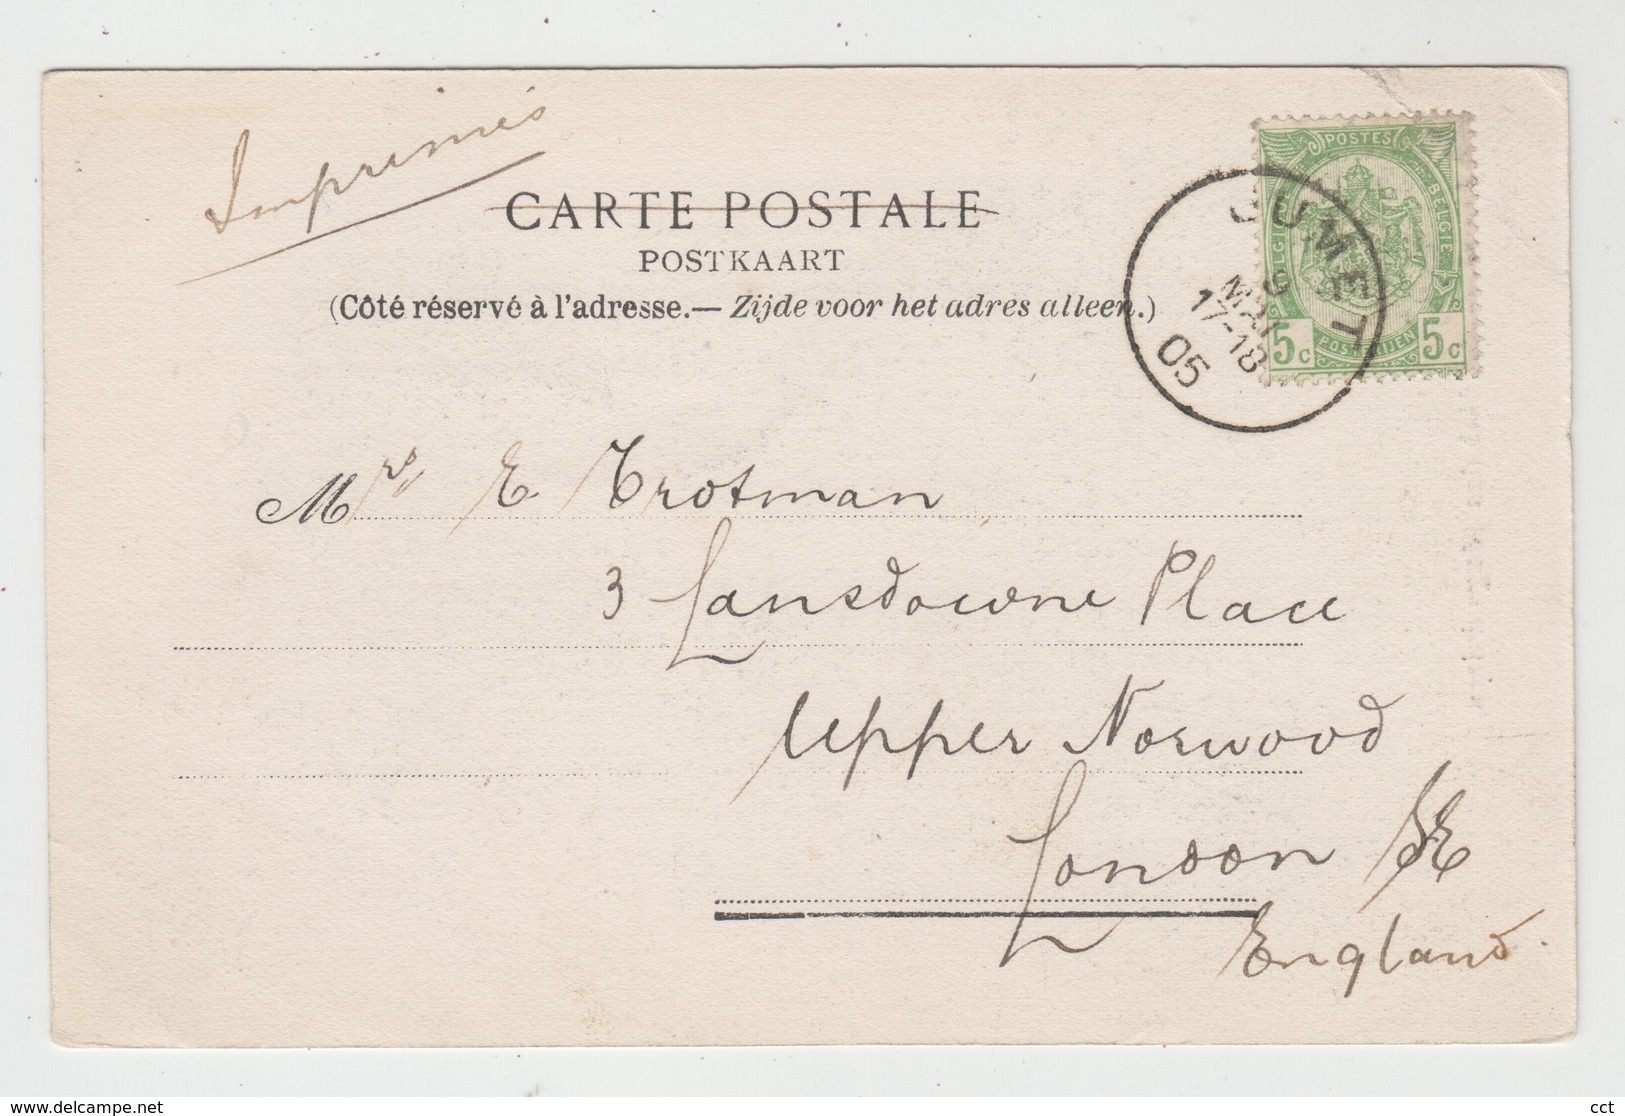 Imprimés
CARTE POSTALE
POSTKAART
(Côté réservé à l'adresse.— Zijde voor het adres alleen.)
POSTES
BELGIQUE
BELGIE
5c
POSTERIJEN
5c
JUMET
9
MAI
17-18
05
Mrs E Trotman
3 Lansdowne Place
Upper Norwood
London SE
England.
www.delcampe.net
cct